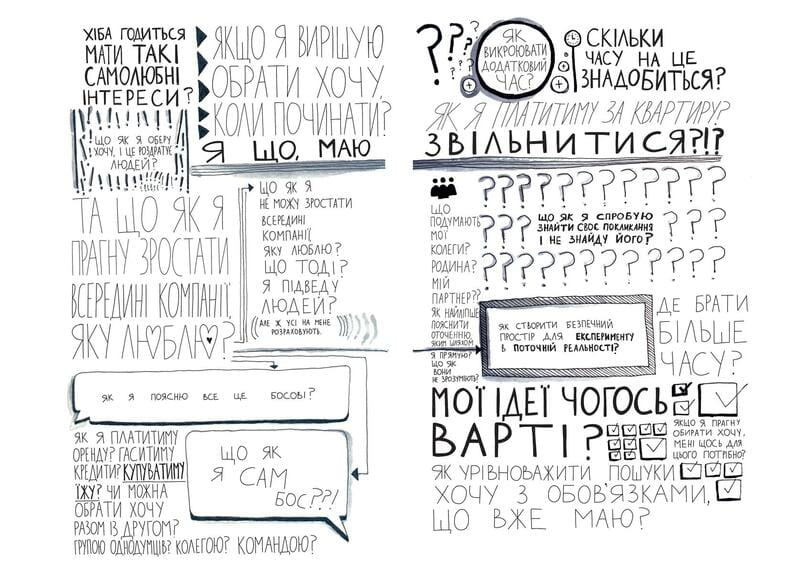 ХІБА ГОДИТЬСЯ
МАТИ ТАКІ
САМОЛЮБНІ
ІНТЕРЕСИ?
ЯКЩО Я ВИРІШУЮ
ОБРАТИ ХОЧУ,
КОЛИ ПОЧИНАТИ?
ЩО ЯК Я ОБЕРУ
ХОЧУ, І ЦЕ РОЗДРАТУЄ
ЛЮДЕЙ?
Я ЩО, МАЮ
ТА ЩО ЯК Я
ПРАГНУ ЗРОСТАТИ
ВСЕРЕДИНІ КОМПАНІЇ,
ЯКУ ЛЮБЛЮ?
ЩО ЯК Я
НЕ МОЖУ ЗРОСТАТИ
ВСЕРЕДИНІ
КОМПАНІЇ,
ЯКУ ЛЮБЛЮ?
ЩО ТОДІ?
Я ПІДВЕДУ
ЛЮДЕЙ?
(АЛЕ Ж УСІ НА МЕНЕ
РОЗРАХОВУЮТЬ.
ЯК Я ПОЯСНЮ ВСЕ ЦЕ БОСОВІ?
ЯК Я ПЛАТИТИМУ
ОРЕНДУ? ГАСИТИМУ
КРЕДИТИ? КУПУВАТИМУ
ЇЖУ? ЧИ МОЖНА
ОБРАТИ ХОЧУ
РАЗОМ ІЗ ДРУГОМ?
ГРУПОЮ ОДНОДУМЦІВ? КОЛЕГОЮ? КОМАНДОЮ?
ЩО ЯК
Я САМ
БОС??!
???
ЯК
ВИКРОЮВАТИ
ДОДАТКОВИЙ
ЧАС?
СКІЛЬКИ
ЧАСУ НА ЦЕ
ЗНАДОБИТЬСЯ?
ЯК Я ПЛАТИТИМУ ЗА КВАРТИРУ?
ЗВІЛЬНИТИСЯ?!?
ЩО
ПОДУМАЮТЬ
МОЇ
КОЛЕГИ?
РОДИНА?
МІЙ
ПАРТНЕР??
ЯК НАЙЛІПШЕ
ПОЯСНИТИ
ОТОЧЕННЮ,
ЯКИМ ШЛЯХОМ
Я ПРЯМУЮ?
ЩО ЯК
ВОНИ
НЕ ЗРОЗУМІЮТЬ?
ЩО ЯК Я СПРОБУЮ
ЗНАЙТИ СВОЄ ПОКЛИКАННЯ
І НЕ ЗНАЙДУ ЙОГО?
ЯК СТВОРИТИ БЕЗПЕЧНИЙ
ПРОСТІР ДЛЯ ЕКСПЕРИМЕНТУ
В ПОТОЧНІЙ РЕАЛЬНОСТІ?
ДЕ БРАТИ
БІЛЬШЕ
ЧАСУ?
МОЇ ІДЕЇ ЧОГОСЬ
ВАРТІ?
ЯКЩО Я ПРАГНУ
ОБИРАТИ ХОЧУ,
МЕНІ ЩОСЬ ДЛЯ
ЦЬОГО ПОТРІБНО?
ЯК УРІВНОВАЖИТИ ПОШУКИ
ХОЧУ З ОБОВ'ЯЗКАМИ,
ЩО ВЖЕ МАЮ?